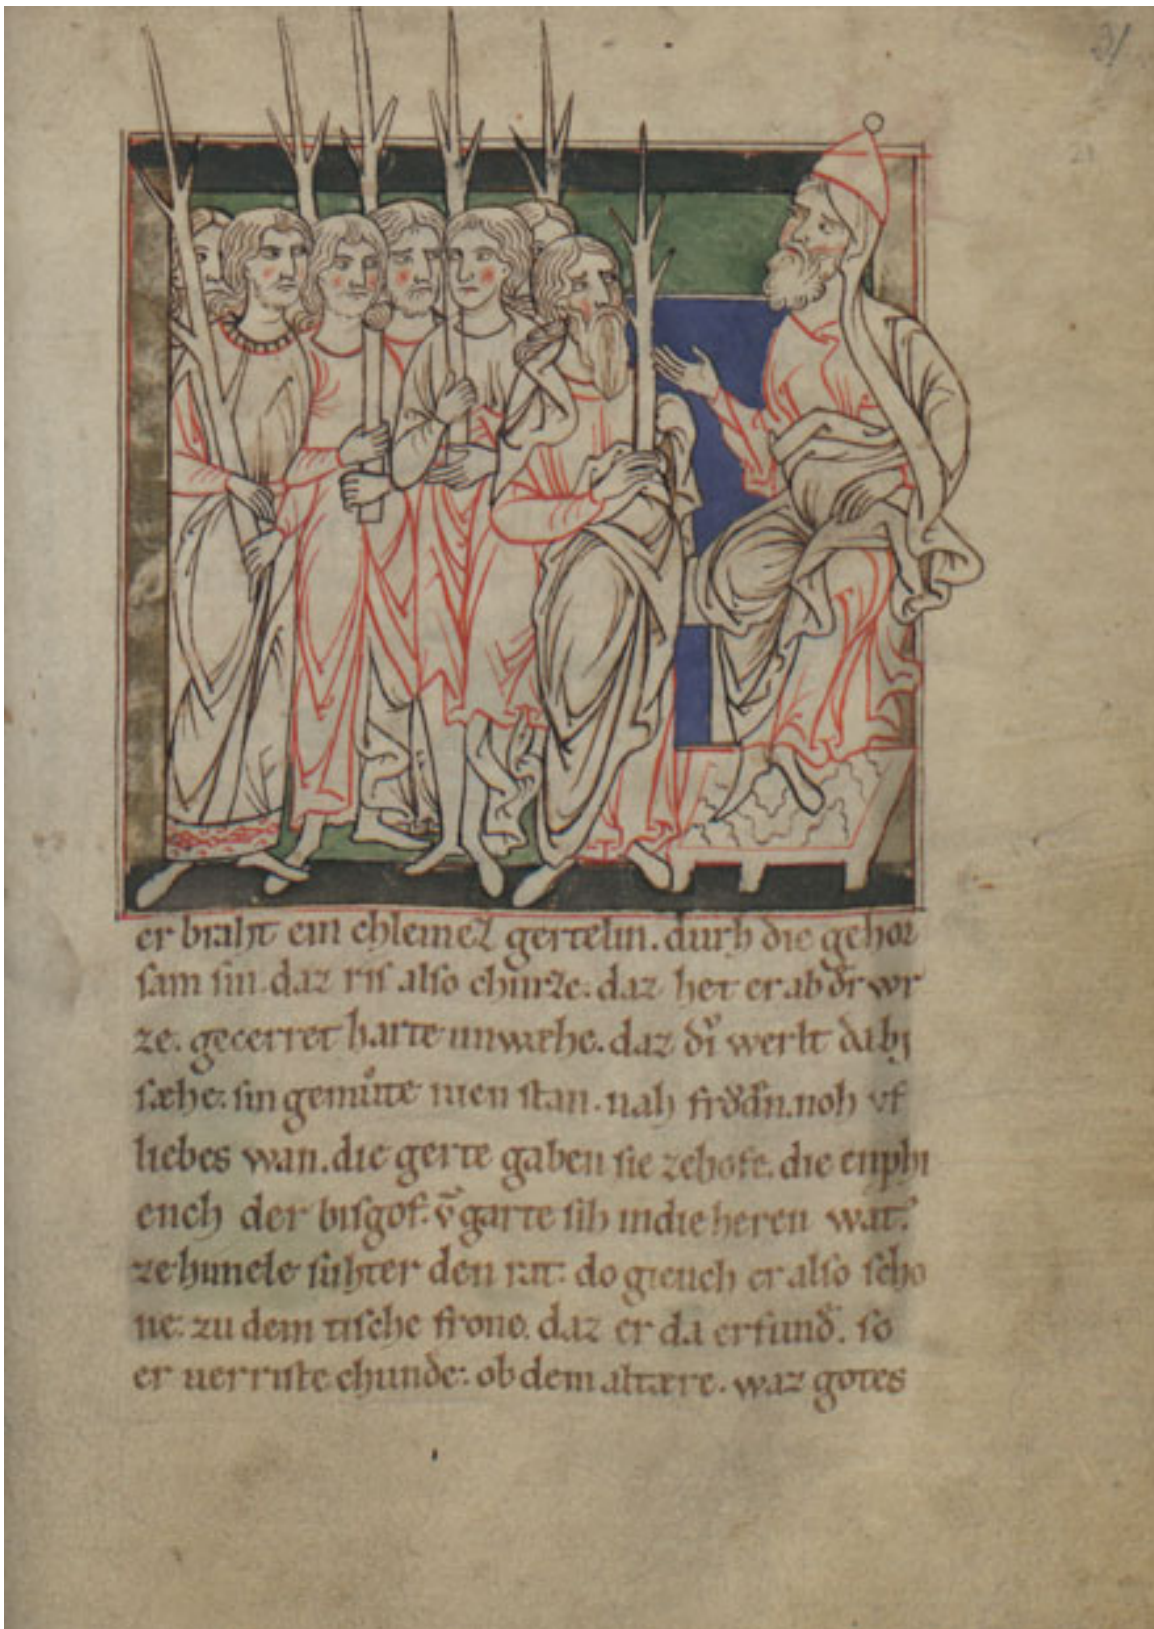 31
21
er braht ein chleinez gertelin. durh die gehor
sam sin. daz ris also churze. daz het er ab dˀ wr
ze. gecerret harte unwæhe. daz div werlt da bi
sæhe. sin gemůte nien stan. nah frŏdn. noh vf
liebes wan. die gerte gaben sie ze hofe. die enphi
ench der bisgof. vn̄ garte sih in die heren wat.
ze himele sŭhter den rat. do giench er also scho
ne. zu dem tische frone. daz er da erfunde. so
er uerriste chunde. ob dem altære. waz gotes